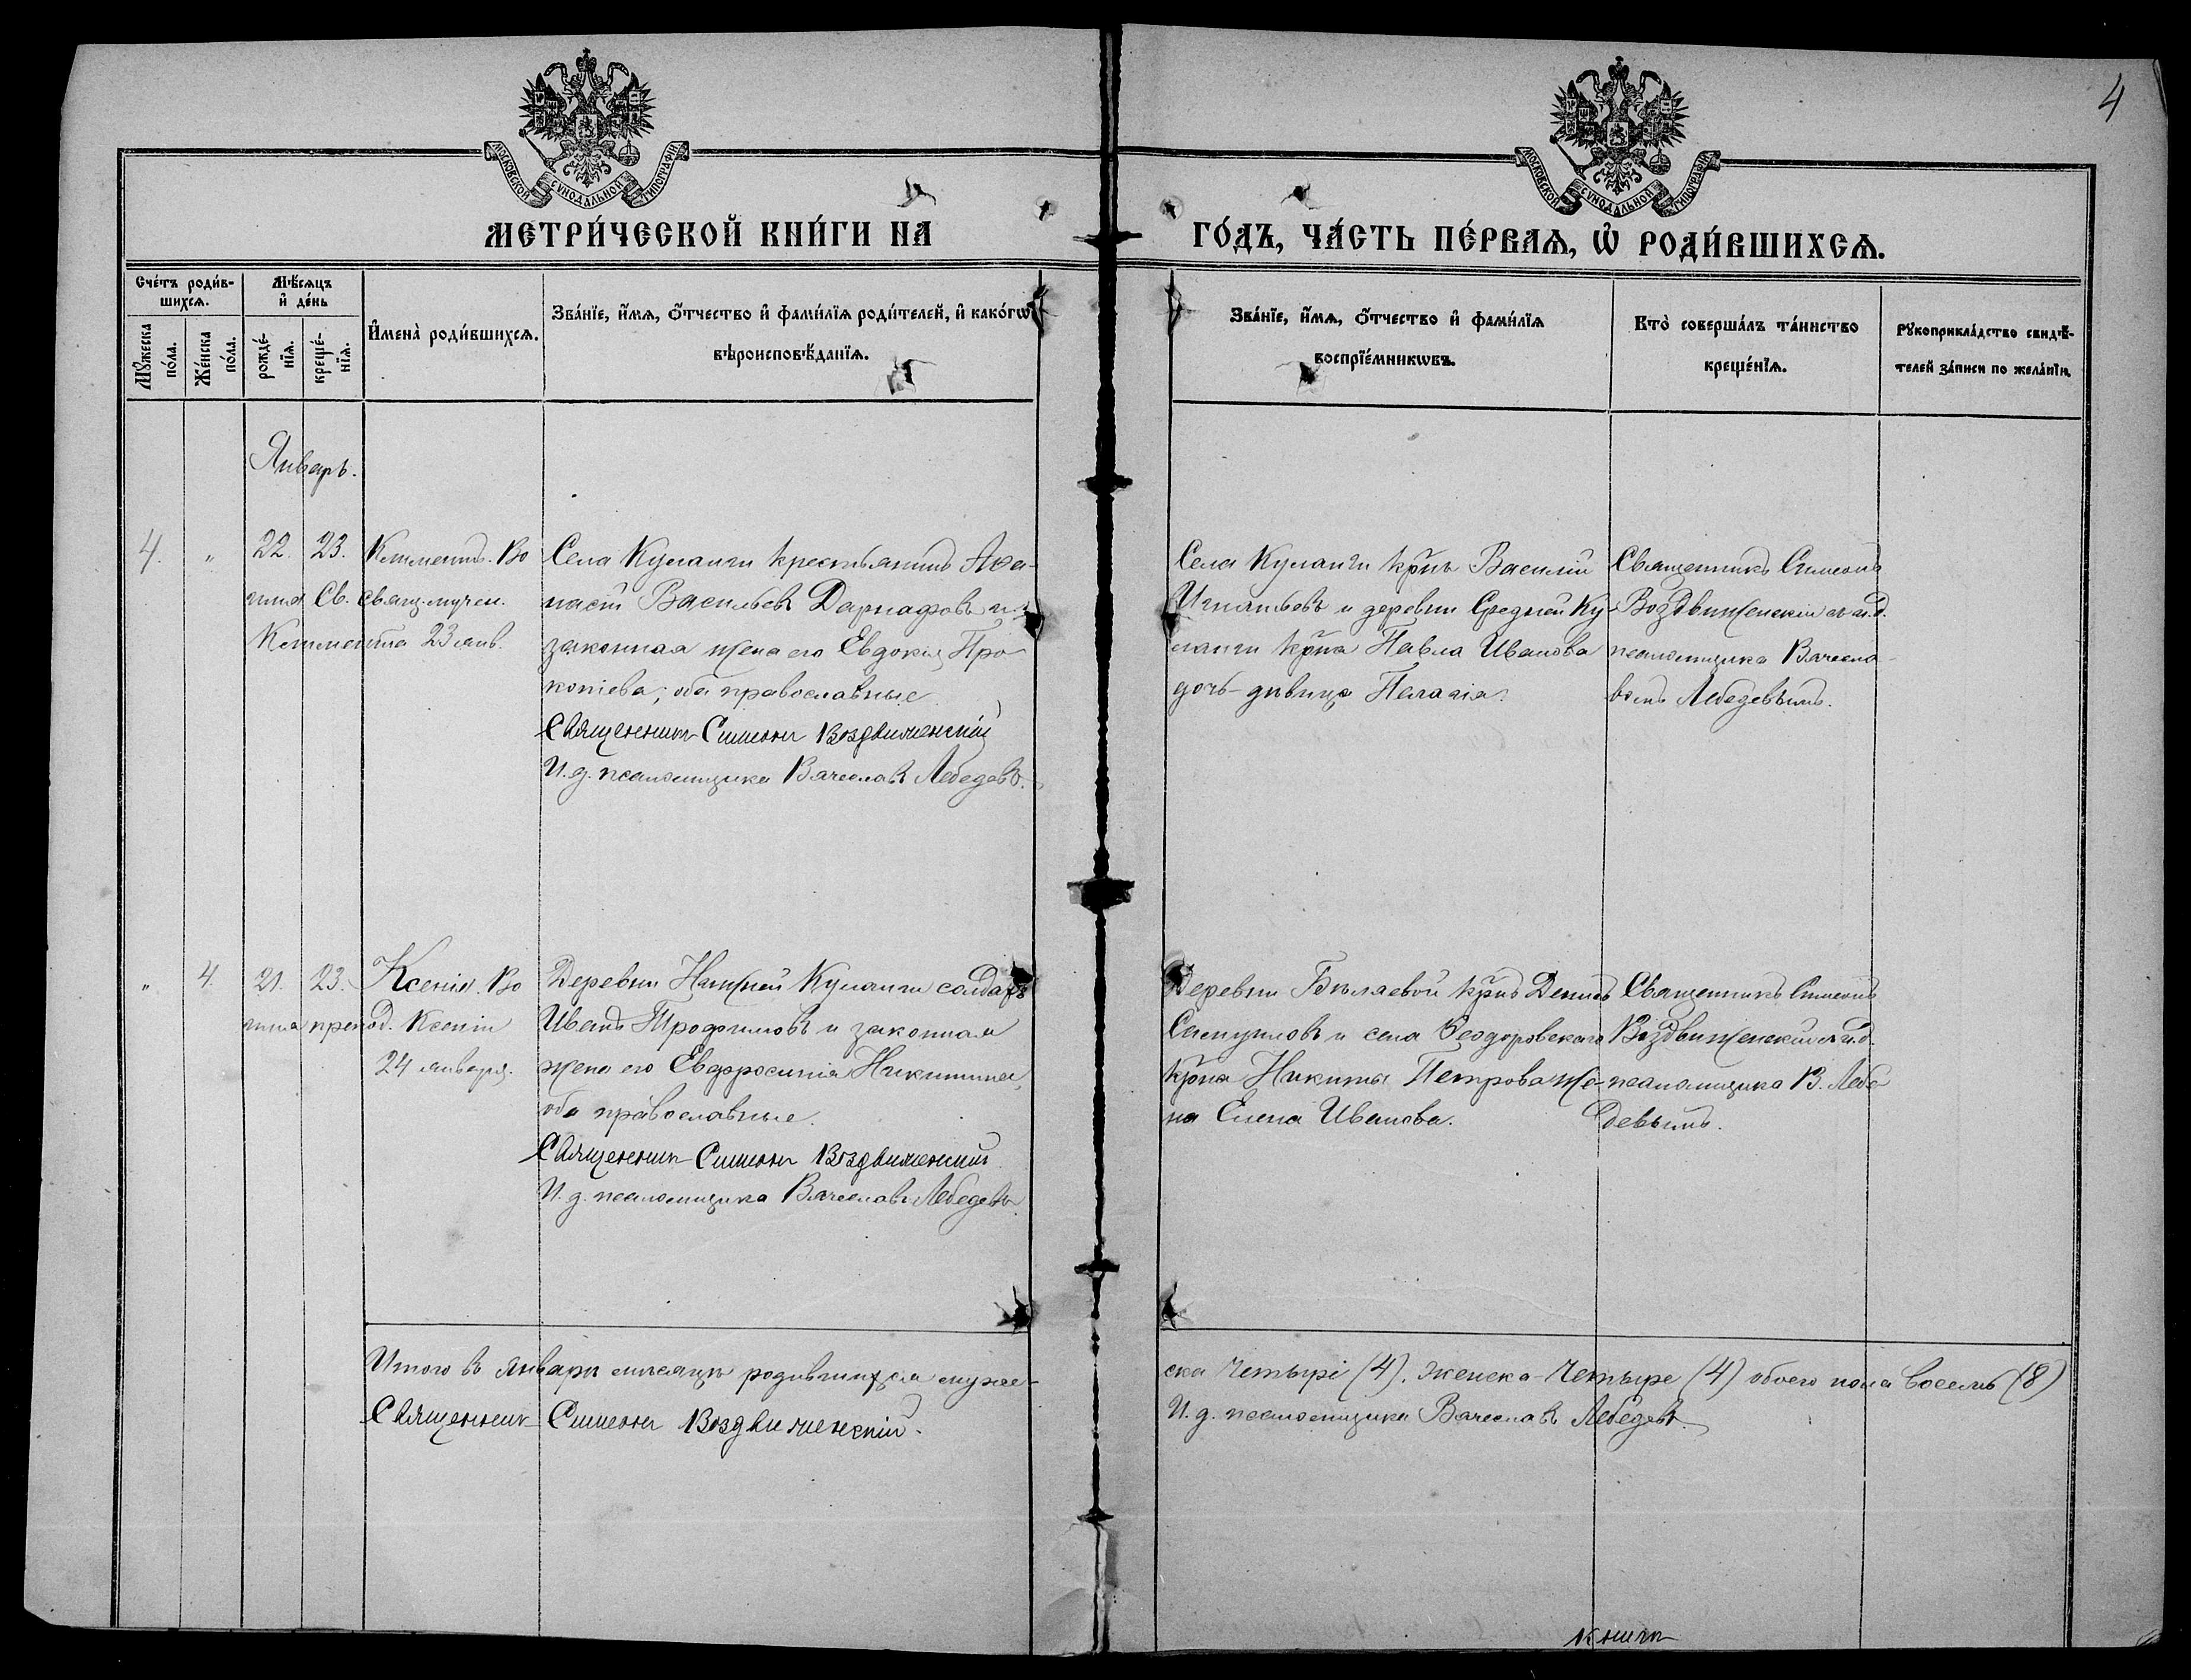 4
МОСКОВСКОЙ СѴНОДАЛЬНОЙ ТИПОГРАФІИ
МОСКОВСКОЙ СѴНОДАЛЬНОЙ ТИПОГРАФІИ
МЕТРИ́ЧЕСКОЙ КНИ́ГИ НА
ГО́ДЪ, ЧА́СТЬ ПЕ́РВАѦ, Ѡ҆ РОДИ́ВШИХСѦ.
Сче́тъ роди́в-
шихсѧ.
Мꙋ́жеска
по́ла.
Же́нска
по́ла.
Мѣ́сѧцъ
и҆ де́нь
рожде́-
нїѧ.
креще́-
нїѧ.
И҆мена̀ роди́вшихсѧ.
Зва́нїе, и҆́мѧ, ѻ҆́тчество и҆ фами́лїѧ роди́телей, и҆ како́гѡ
вѣроисповѣ́данїѧ.
Зва́нїе, и҆́мѧ, ѻ҆́тчество и҆ фами́лїѧ
воспрїе́мникѡвъ.
Кто̀ соверша́лъ та́инство
креще́нїѧ.
Рꙋкоприкла́дство свидѣ́-
телей за́писи по жела́нїю.
Январь.
4. " 22. 23. Климентъ. Во
имя Св. свящ.-мучен.
Климента 23 янв.
Села Куланги крестьянинъ Аѳа-
насій Васильевъ Дарнафовъ и
законная жена его Евдокія Про
копіева; оба православные
Священникъ Симеонъ Воздвиженскій
И. д. псаломщика Вячеславъ Лебедевъ.
Села Куланги кр̃нъ Василій
Игнатьевъ и деревни Средней Ку-
ланги кр̃на Павла Иванова
дочь-дѣвица Пелагія.
Священникъ Симеонъ
Воздвиженскій съ и.д.
псаломщика Вячесла-
вомъ Лебедевымъ.
" 4. 21. 23. Ксенія. Во
имя препод. Ксеніи
24 января.
Деревни Нижней Куланги солдатъ
Иванъ Трофимовъ и законная
жена его Евфросинія Никитина,
оба православные.
Священникъ Симеонъ Воздвиженскій
И. д. псаломщика Вячеславъ Лебедевъ
Деревни Бѣляевой кр̃нъ Денисъ
Самуиловъ и села Ѳеодоровскаго
кр̃на Никиты Петрова же-
на Елена Иванова.
Священникъ Симеонъ
Воздвиженскій съ и.д.
псаломщика В. Лебе
девымъ.
Итого въ Январѣ мѣсяцѣ родившихся муже-
ска Четыре (4). женска - Четыре (4) обоего пола восемь (8)
Священникъ Симеонъ Воздвиженскій.
И. д. псаломщика Вячеславъ Лебедевъ.